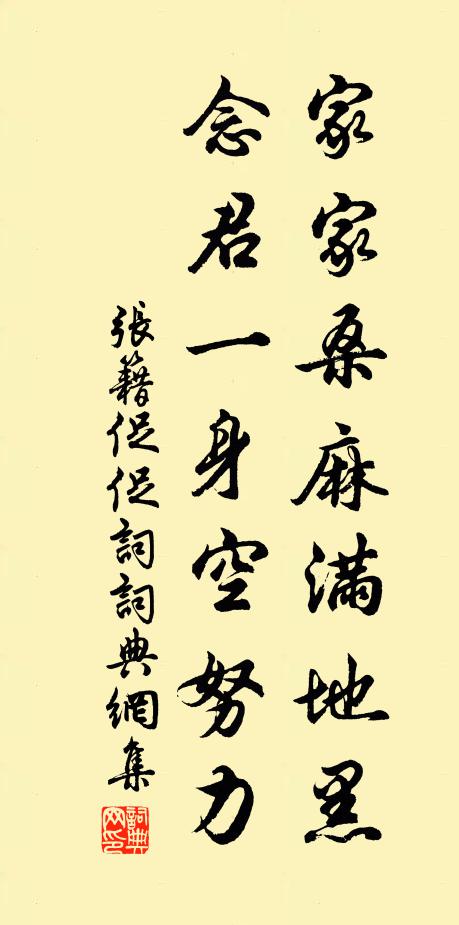 家家桑麻滿地黑
念君一身空努力
張籍促促詞詞典網集
詞典
网印